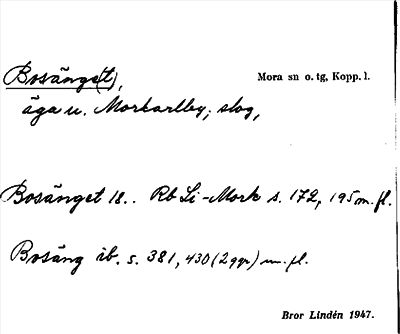 Bosänge(t), Mora sn o. tg, Kopp. l.
äga u. Morkarlby, slog,
Bosänget 18.. Rb Li-Mork s. 172, 195 m. fl.
Bosäng ib. s. 381, 430 (2 ggr) m. fl.
Bror Lindén 1947.